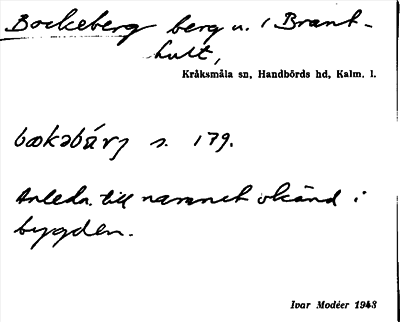 Bockeberg berg u. i Brant-
hult,
Kråksmåla sn, Handbörds hd, Kalm. l.
bɷkəbárj s. 179.
Anledn. till namnet okänd i
bygden.
Ivar Modéer 1943